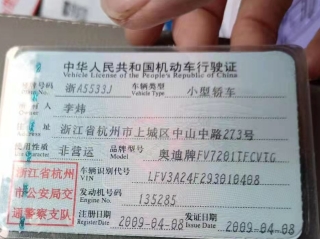 中华人民共和国机动车行驶证
Vehicle License of the People's Republic of China
号牌号码 浙A5S33J 车辆类型 小型轿车
Vehicle Type
李炜
浙江省杭州市上城区中山中路273号
使用性质 非营运 品牌型号 奥迪牌FV7201TFCVTG
浙江省杭州市公安局交通警察支队
车辆识别代号 LFV3A24F293010408
VIN
发动机号码 135285
Engine No.
注册日期 2009-04-08 发证日期 2009-04-08
Register Date Issue Date